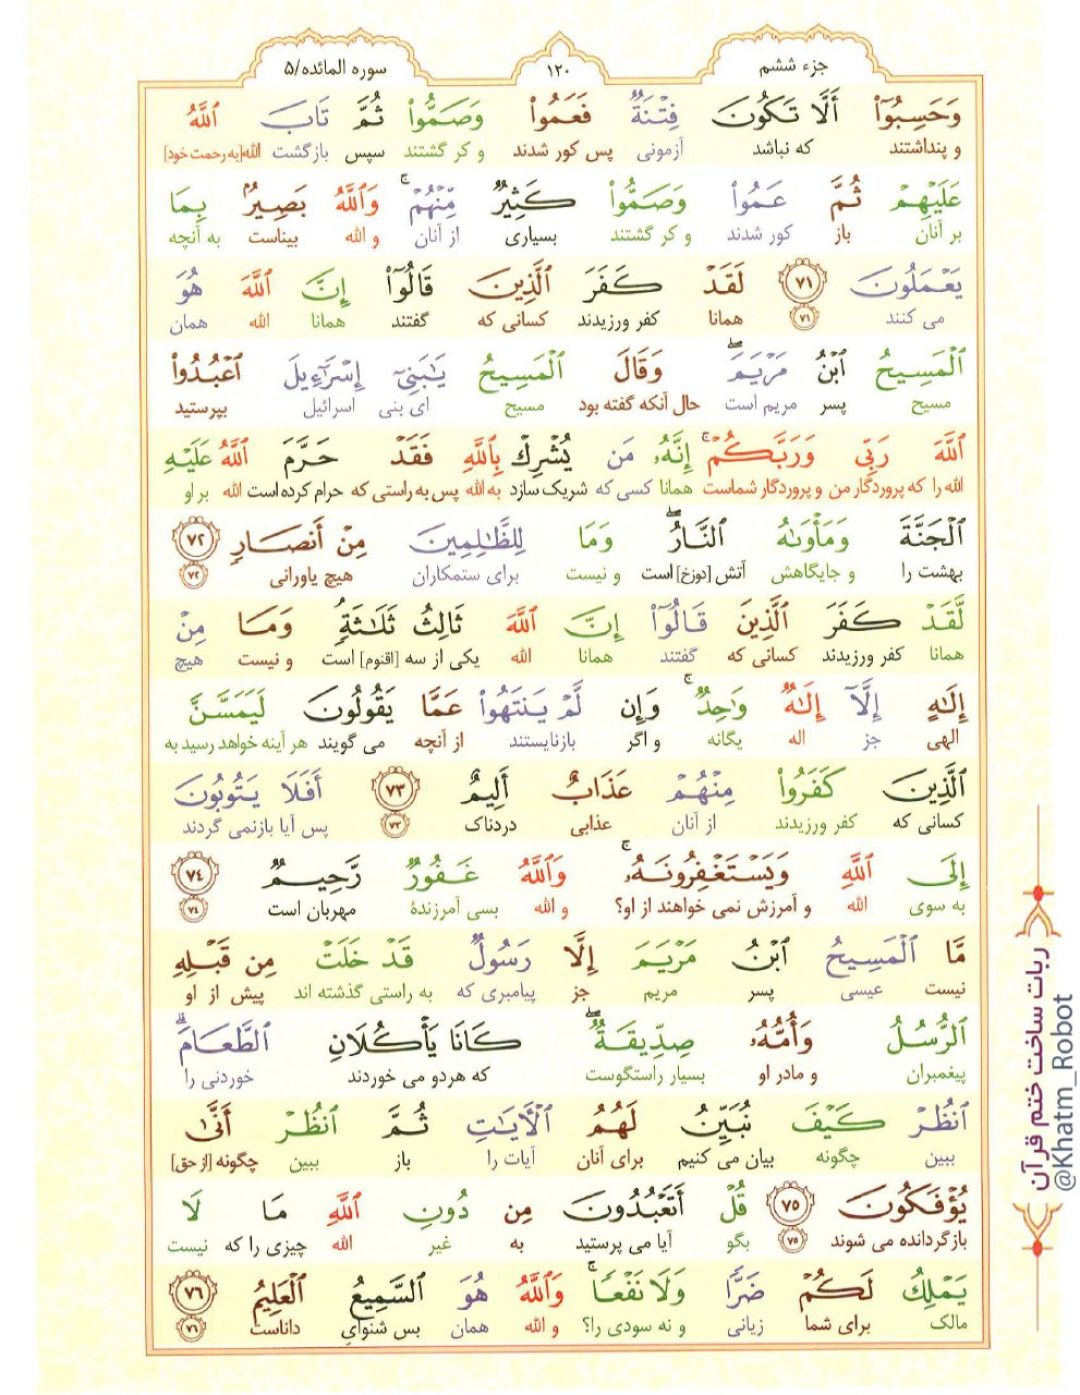 جزء ششم
۱۲۰
سوره المائده/۵
وَحَسِبُوٓاْ أَلَّا تَكُونَ فِتۡنَةٞ فَعَمُواْ وَصَمُّواْ ثُمَّ تَابَ ٱللَّهُ
و پنداشتند که نباشد آزمونی پس کور شدند و کر گشتند سپس بازگشت الله[به رحمت خود]
عَلَيۡهِمۡ ثُمَّ عَمُواْ وَصَمُّواْ كَثِيرٞ مِّنۡهُمۡۚ وَٱللَّهُ بَصِيرُۢ بِمَا
بر آنان باز کور شدند و کر گشتند بسیاری از آنان و الله بیناست به آنچه
يَعۡمَلُونَ ٧١ لَقَدۡ كَفَرَ ٱلَّذِينَ قَالُوٓاْ إِنَّ ٱللَّهَ هُوَ
می کنند ۷۱ همانا کفر ورزیدند کسانی که گفتند همانا الله همان
ٱلۡمَسِيحُ ٱبۡنُ مَرۡيَمَۖ وَقَالَ ٱلۡمَسِيحُ يَٰبَنِيٓ إِسۡرَٰٓءِيلَ ٱعۡبُدُواْ
مسیح پسر مریم است حال آنکه گفته بود مسیح ای بنی اسرائیل بپرستید
ٱللَّهَ رَبِّي وَرَبَّكُمۡۚ إِنَّهُۥ مَن يُشۡرِكۡ بِٱللَّهِ فَقَدۡ حَرَّمَ ٱللَّهُ عَلَيۡهِ
الله را که پروردگار من و پروردگار شماست همانا کسی که شریک سازد به الله پس به راستی که حرام کرده است الله بر او
ٱلۡجَنَّةَ وَمَأۡوَىٰهُ ٱلنَّارُۖ وَمَا لِلظَّٰلِمِينَ مِنۡ أَنصَارٖ ٧٢
بهشت را و جایگاهش آتش [دوزخ] است و نیست برای ستمکاران هیچ یاورانی ۷۲
لَّقَدۡ كَفَرَ ٱلَّذِينَ قَالُوٓاْ إِنَّ ٱللَّهَ ثَالِثُ ثَلَٰثَةٖۘ وَمَا مِنۡ
همانا کفر ورزیدند کسانی که گفتند همانا الله یکی از سه [اقنوم] است و نیست هیچ
إِلَٰهٍ إِلَّآ إِلَٰهٞ وَٰحِدٞۚ وَإِن لَّمۡ يَنتَهُواْ عَمَّا يَقُولُونَ لَيَمَسَّنَّ
الهی جز اله یگانه و اگر بازنایستند از آنچه می گویند هر آینه خواهد رسید به
ٱلَّذِينَ كَفَرُواْ مِنۡهُمۡ عَذَابٌ أَلِيمٌ ٧٣ أَفَلَا يَتُوبُونَ
کسانی که کفر ورزیدند از آنان عذابی دردناک ۷۳ پس آیا بازنمی گردند
إِلَى ٱللَّهِ وَيَسۡتَغۡفِرُونَهُۥۚ وَٱللَّهُ غَفُورٞ رَّحِيمٞ ٧٤
به سوی الله و آمرزش نمی خواهند از او؟ و الله بسی آمرزندهٔ مهربان است ۷۴
مَّا ٱلۡمَسِيحُ ٱبۡنُ مَرۡيَمَ إِلَّا رَسُولٞ قَدۡ خَلَتۡ مِن قَبۡلِهِ
نیست عیسی پسر مریم جز پیامبری که به راستی گذشته اند پیش از او
ٱلرُّسُلُ وَأُمُّهُۥ صِدِّيقَةٞۖ كَانَا يَأۡكُلَانِ ٱلطَّعَامَۗ
پیغمبران و مادر او بسیار راستگوست که هردو می خوردند خوردنی را
ٱنظُرۡ كَيۡفَ نُبَيِّنُ لَهُمُ ٱلۡأٓيَٰتِ ثُمَّ ٱنظُرۡ أَنَّىٰ
ببین چگونه بیان می کنیم برای آنان آیات را باز ببین چگونه [از حق]
يُؤۡفَكُونَ ٧٥ قُلۡ أَتَعۡبُدُونَ مِن دُونِ ٱللَّهِ مَا لَا
بازگردانده می شوند ۷۵ بگو آیا می پرستید به غیر الله چیزی را که نیست
يَمۡلِكُ لَكُمۡ ضَرّٗا وَلَا نَفۡعٗاۚ وَٱللَّهُ هُوَ ٱلسَّمِيعُ ٱلۡعَلِيمُ ٧٦
مالک برای شما زیانی و نه سودی را؟ و الله همان بس شنوای داناست ۷۶
ربات ساخت ختم قرآن
@Khatm_Robot